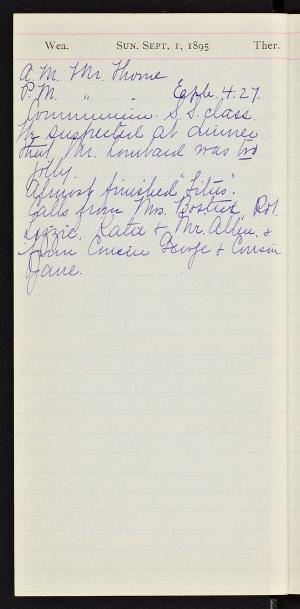 Wea. SUN. SEPT. 1, 1895 Ther.
A.M. Mr. Thorne.
P.M. " " Eph. 4:27.
Communion. S.S. class.
We suspected at dinner
that Mr. Lombard was too
jolly.
Almost finished "Titus".
Calls from Mrs. Bostick, Rob.
Lizzie, Katie & Mr. Allen, &
from Cousin George & Cousin
Jane.